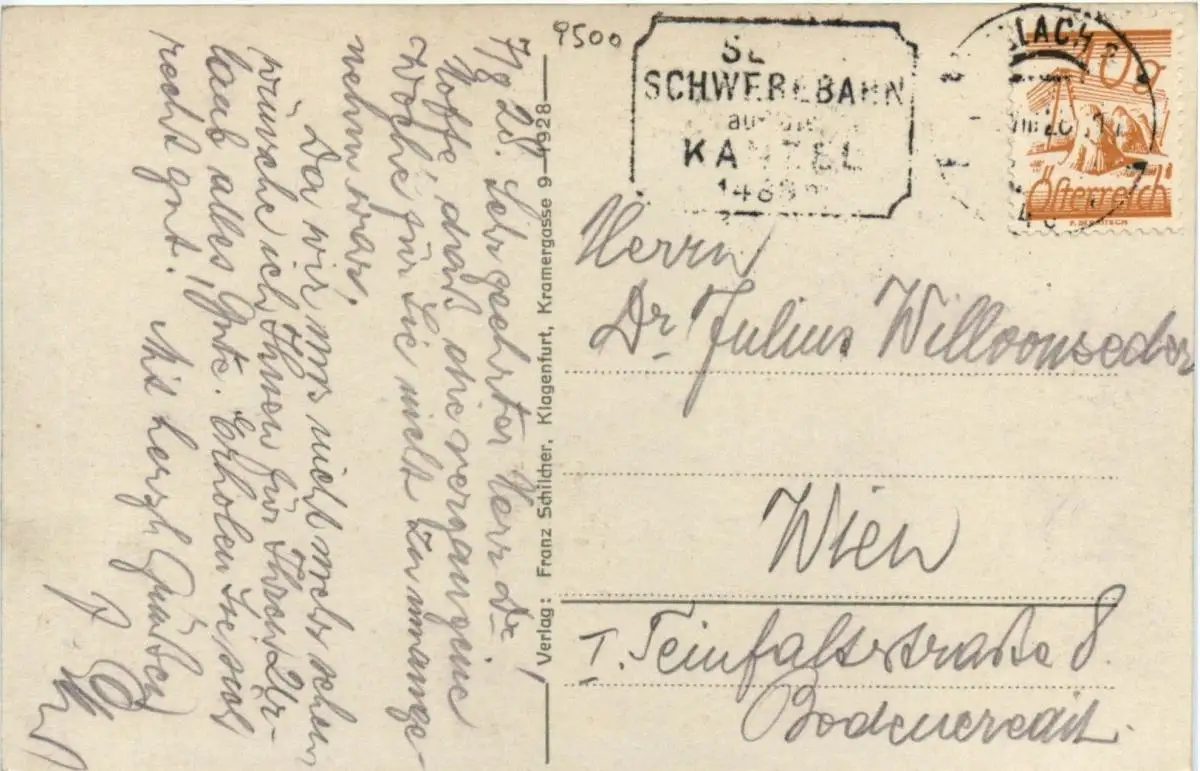 7/8 28. Sehr geehrter Herr Dr.
Hoffe, daß die vergangene
Woche für Sie nicht zu unange-
nehm war.
Da wir uns nicht mehr sehen
wünsche ich Ihnen für Ihren Ur-
laub alles Gute. Erholen Sie sich
recht gut. Mit herzl. Grüßen
Verlag: Franz Schilcher, Klagenfurt, Kramergasse 9 — 1928
9500
SCHWEBEBAHN
auf die
KANZEL
Österreich
Herrn
Dr. Julius Willvonseder
Wien
I. Teinfaltstraße 8.
Bodencredit.